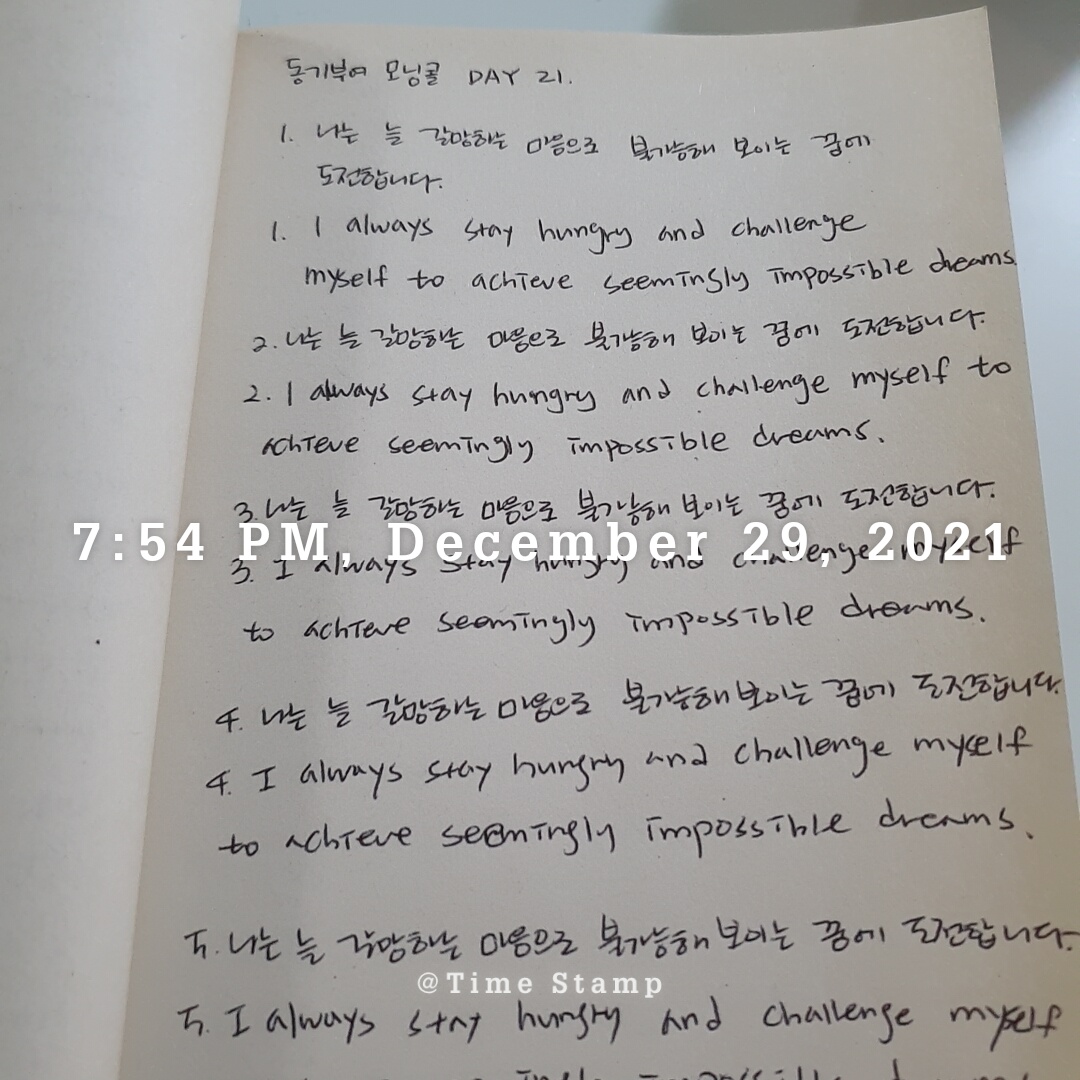 동기부여 모닝콜 DAY 21.
1. 나는 늘 갈망하는 마음으로 불가능해 보이는 꿈에
도전합니다.
1. I always stay hungry and challenge
myself to achieve seemingly impossible dreams.
2. 나는 늘 갈망하는 마음으로 불가능해 보이는 꿈에 도전합니다.
2. I always stay hungry and challenge myself to
achieve seemingly impossible dreams.
3. 나는 늘 갈망하는 마음으로 불가능해 보이는 꿈에 도전합니다.
7:54 PM, December 29, 2021
3. I always stay hungry and challenge myself
to achieve seemingly impossible dreams.
4. 나는 늘 갈망하는 마음으로 불가능해 보이는 꿈에 도전합니다.
4. I always stay hungry and challenge myself
to achieve seemingly impossible dreams.
5. 나는 늘 갈망하는 마음으로 불가능해 보이는 꿈에 도전합니다.
@Time Stamp
5. I always stay hungry and challenge myself